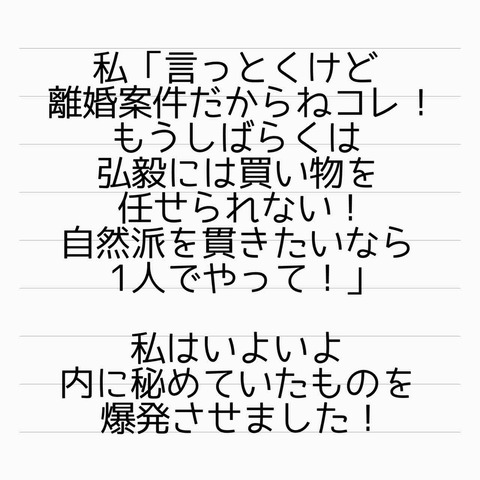 私「言っとくけど
離婚案件だからねコレ！
もうしばらくは
弘毅には買い物を
任せられない！
自然派を貫きたいなら
1人でやって！」
私はいよいよ
内に秘めていたものを
爆発させました！